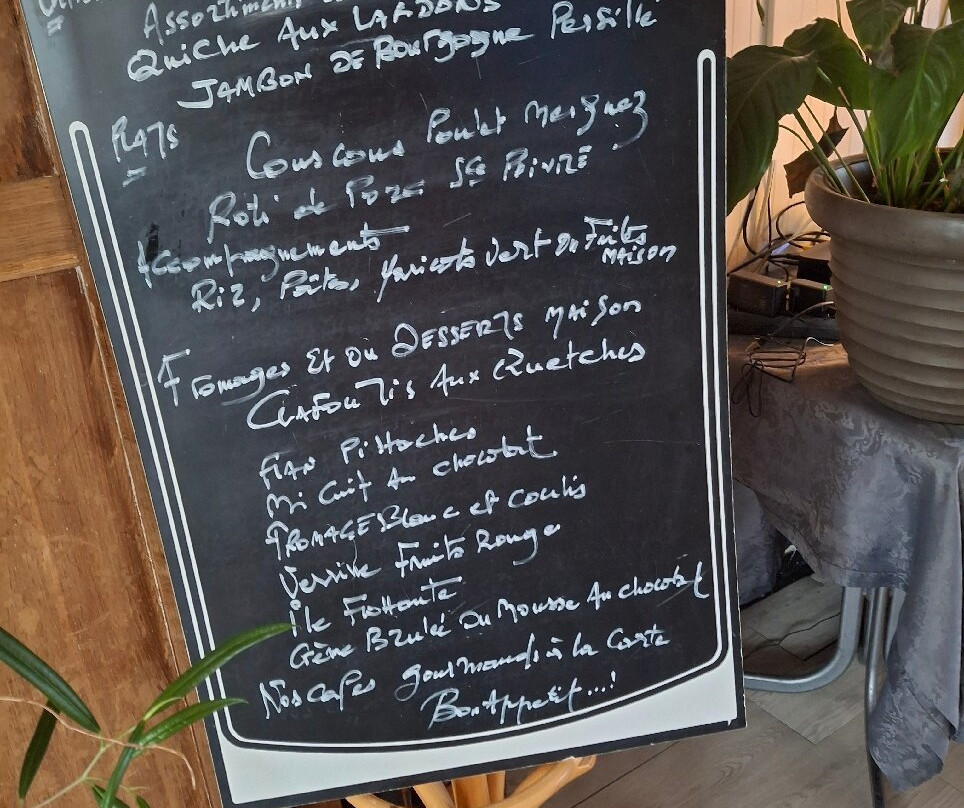 Assortiments
Quiche Aux LARDONS
JAMBON DE Bourgogne Persillé
PLATS
Couscous Poulet Merguez
Roti de Porc Sce POIVRE
Accompagnements
Riz, Pâtes, Haricots Vert ou Frites
MAISON
Fromages Et ou DESSERTS MAISON
CLAFOUTIS Aux Quetches
FLAN Pistaches
Mi Cuit Au chocolat
FROMAGE Blanc et coulis
Verrine Fruits Rouge
île Flottante
Crème Brulé ou Mousse Au chocolat
Nos cafés gourmands à la Carte
Bon Appetit....!